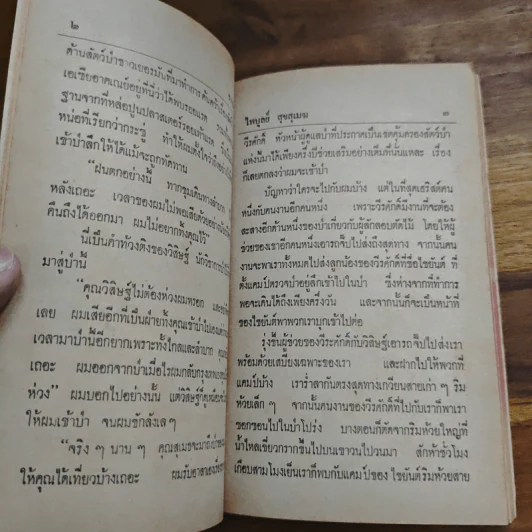 ๒
ด้านสัตว์ป่าชาวเยอรมันที่มาทำการค้นคว้า
เอเซียอาคเณย์อยู่ที่นี่ว่าได้พบรอยแรด
ฐานจากที่หล่อปูนปลาสเตอร์รอยเท้าแรด
หน่อที่เรียกว่ากระซู่ ทำให้ผมสั่งใจว่า
เข้าป่าลึกให้ได้แม้จะถูกทัดทาน
"ฝนตกอย่างนี้ ทากชุมเดินทางลำบาก
หลังเถอะ เวลาของผมไม่พอเสียด้วย
คืนถึงได้ออกมา ผมไม่อยากทิ้งคุณไว้"
นี่เป็นคำท้วงติงของวิสิษฐ์ นักวิชาการ
มาสู่ป่านี้
"คุณวิสิษฐ์ไม่ต้องห่วงผมหรอก
เลย ผมเสียอีกที่เป็นฝ่ายทิ้งคุณเข้าไป
เวลามาป่านี้อีกยากเพราะทั้งไกลและลำบาก
เถอะ ผมออกจากป่าเมื่อไรผมกลับกรุงเทพ
ห่วง" ผมบอกไปอย่างนั้น แต่วิสิษฐ์
ให้ผมเข้าป่า จนผมชักลังเล
"จริง ๆ นาน ๆ คุณสุเมธจะมาถึง
ให้คุณได้เที่ยวบ้างเถอะ ผมรับอาสา
ไพบูลย์ สุขสุเมฆ ๓
วีรศักดิ์ หัวหน้าผู้ดูแลป่าที่ประกาศเป็นเขตคุ้มครองสัตว์ป่า
แห่งนี้มาได้เพียงครึ่งปีช่วยเสริมอย่างเต็มที่นั่นแหละ เรื่อง
ก็เลยตกลงว่าผมจะเข้าป่า
ปัญหาว่าใครจะไปกับผมบ้าง แต่ในที่สุดเจริสลีคน
หนึ่งกับคนงานอีกคนหนึ่ง เพราะวีรศักดิ์มีงานที่จะต้อง
สะสางอีกด้านหนึ่งของป่าเกี่ยวกับผู้ลักลอบตัดไม้ โดยให้ผู้
ช่วยของเขาอีกคนหนึ่งเอารถจี๊ปไปส่งถึงสุดทาง จากนั้นคน
งานจะพาเราทั้งหมดไปส่งลูกน้องของวีรศักดิ์ที่ชื่อไชยันต์ ที่
ตั้งแคมป์ตรวจป่าอยู่ลึกเข้าไปในป่า ซึ่งห่างจากที่ทำการ
พอจะเดินได้ถึงเพียงครึ่งวัน และจากนั้นก็จะเป็นหน้าที่
ของไชยันต์พาพวกเราบุกเข้าไปต่อ
รุ่งขึ้นผู้ช่วยของวีรศักดิ์กับวิสิษฐ์เอารถจี๊ปไปส่งเรา
พร้อมด้วยเสบียงเฉพาะของเรา และฝากไปให้พวกที่
แคมป์บ้าง เราร่ำลากันตรงสุดทางเกวียนสายเก่า ๆ ริม
ห้วยเล็ก ๆ จากนั้นคนงานของวีรศักดิ์ที่ไปกับเราก็พาเรา
ซอกซอนไปในป่าโปร่ง บางตอนก็ตัดจากริมห้วยใหญ่ที่
น้ำไหลเชี่ยวกรากขึ้นไปบนเขาวนไปวนมา สักห้าชั่วโมง
เกือบสามโมงเย็นเราก็พบกับแคมป์ของ ไชยันต์ริมห้วยสาย